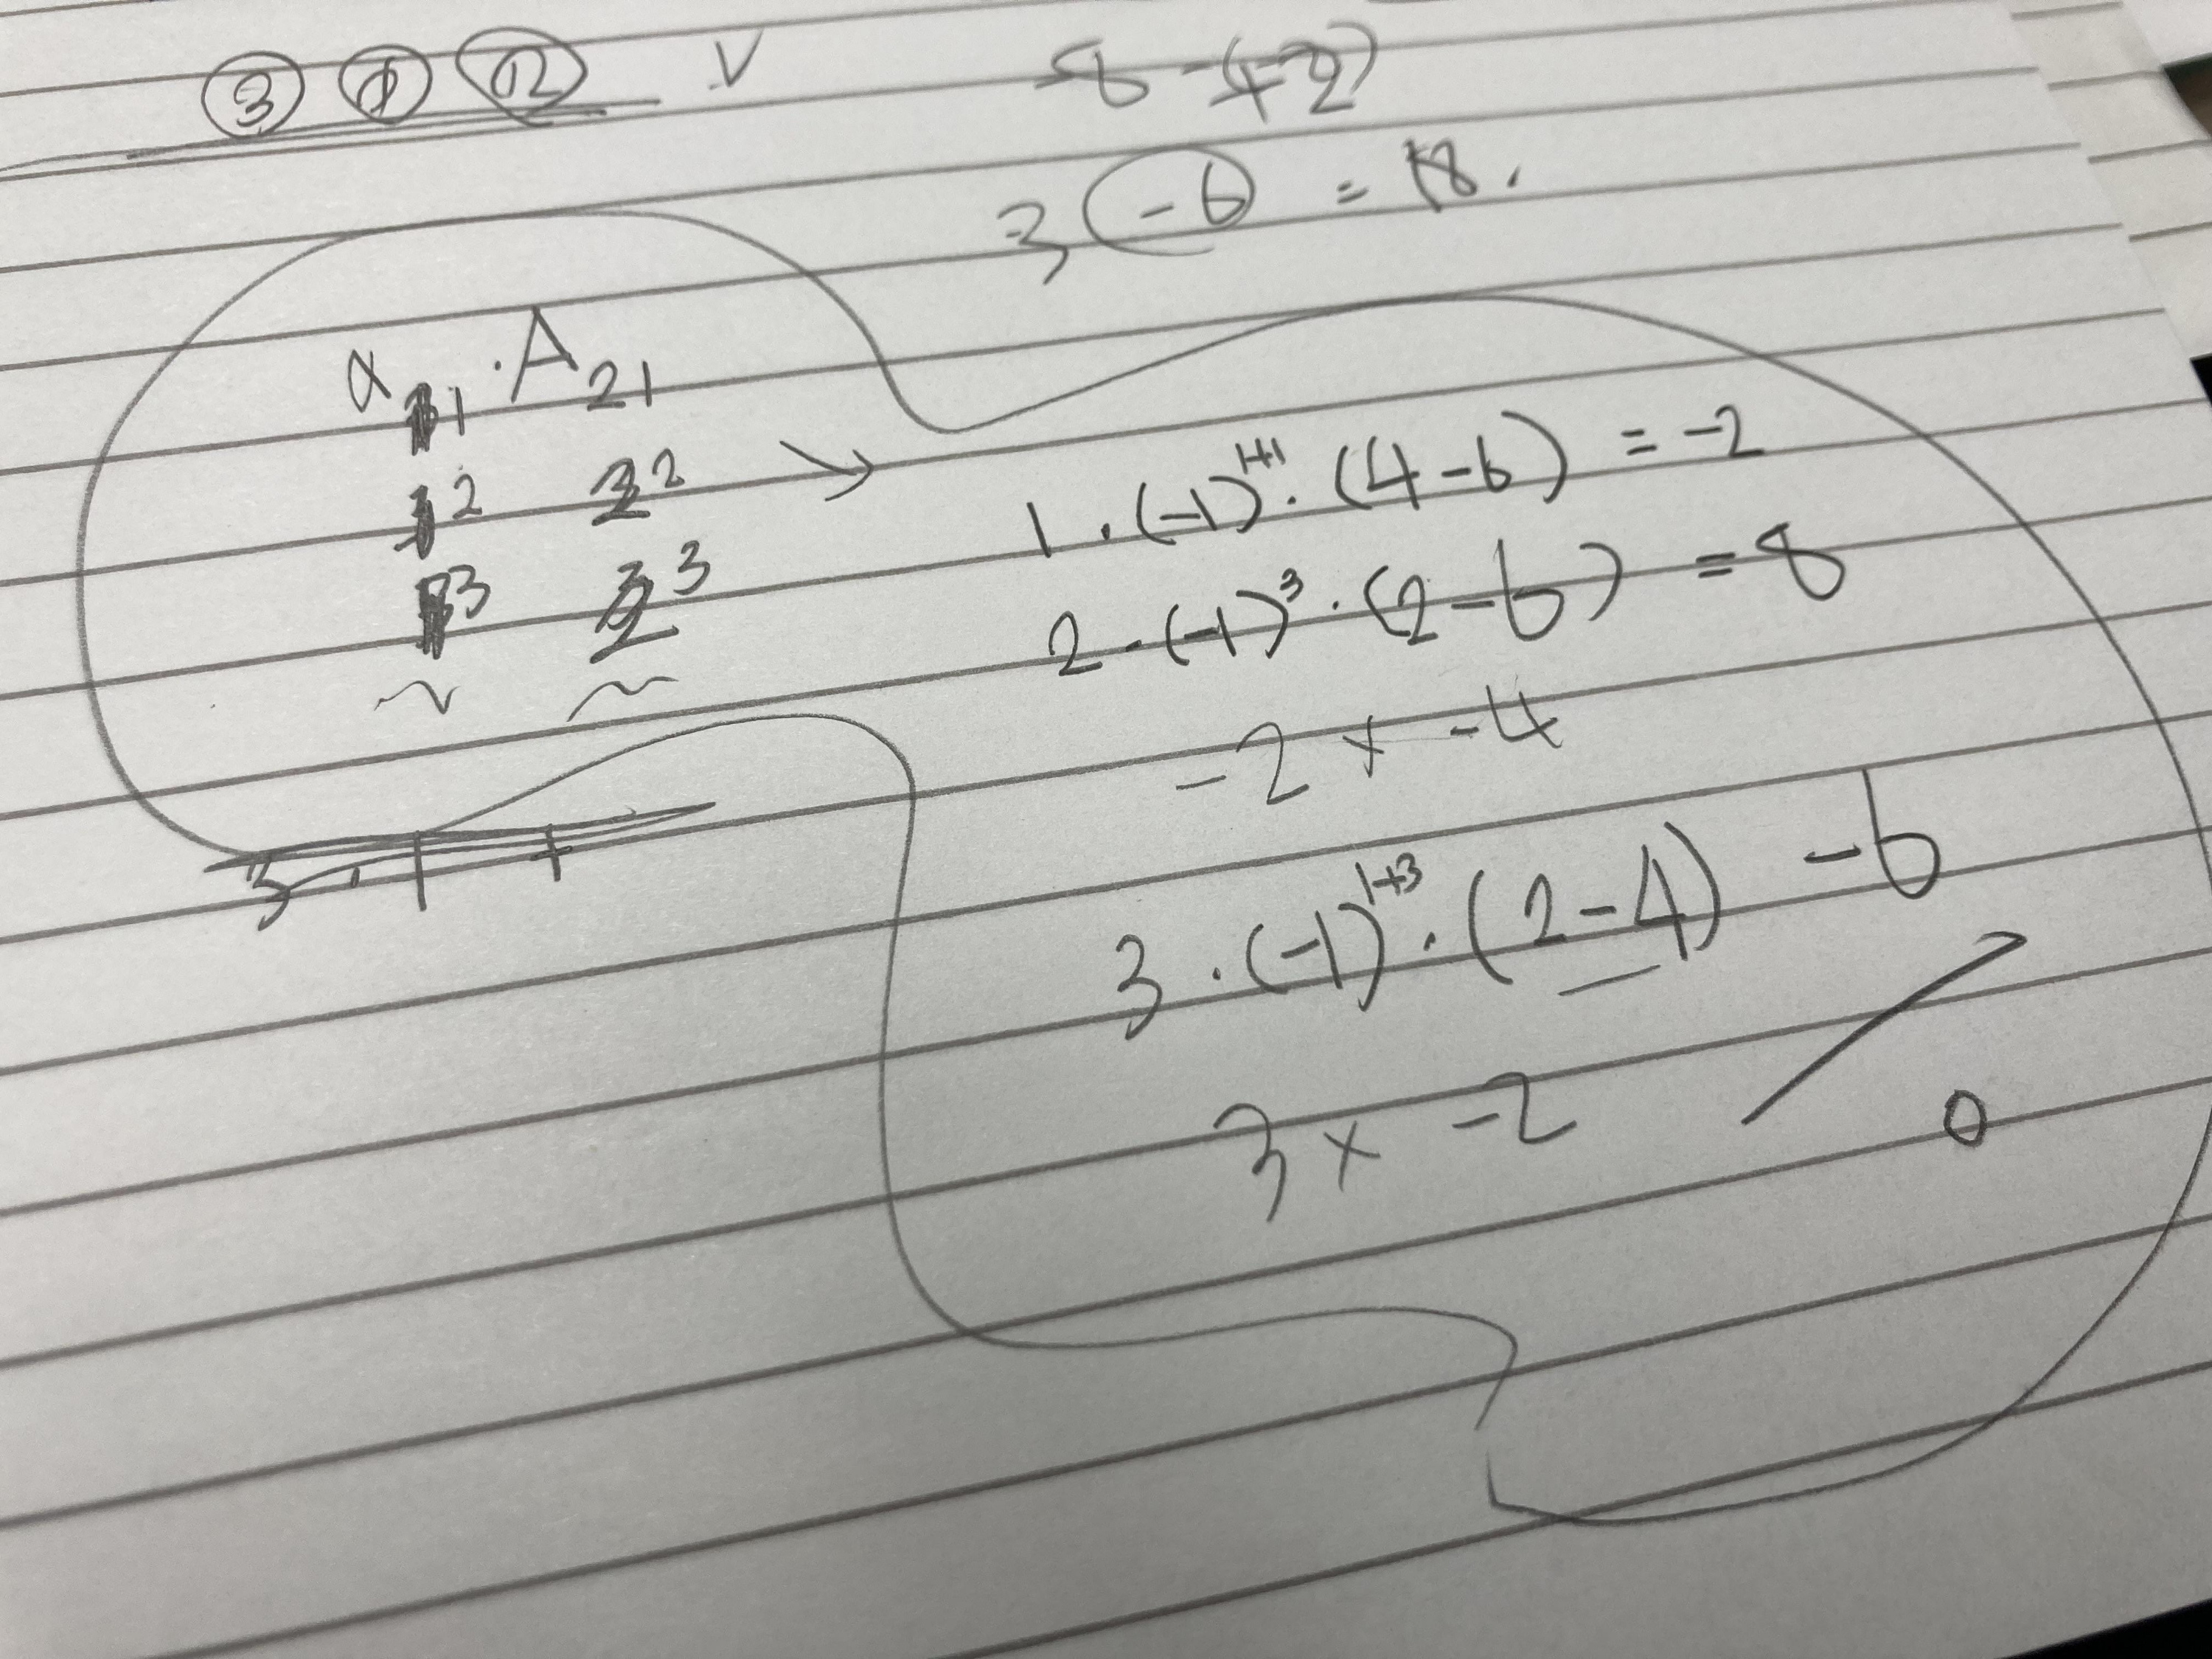 ③ ① ⑫ V
-8 - (+2)
3 (-6) = 18.
a₁₁ · A₂₁
12 22 →
13 23
1 · (-1)¹⁺¹ · (4-6) = -2
2 · (-1)³ · (2-6) = 8
-2 × -4
3 · (-1)¹⁺³ · (2-4) -6
3 × -2
0